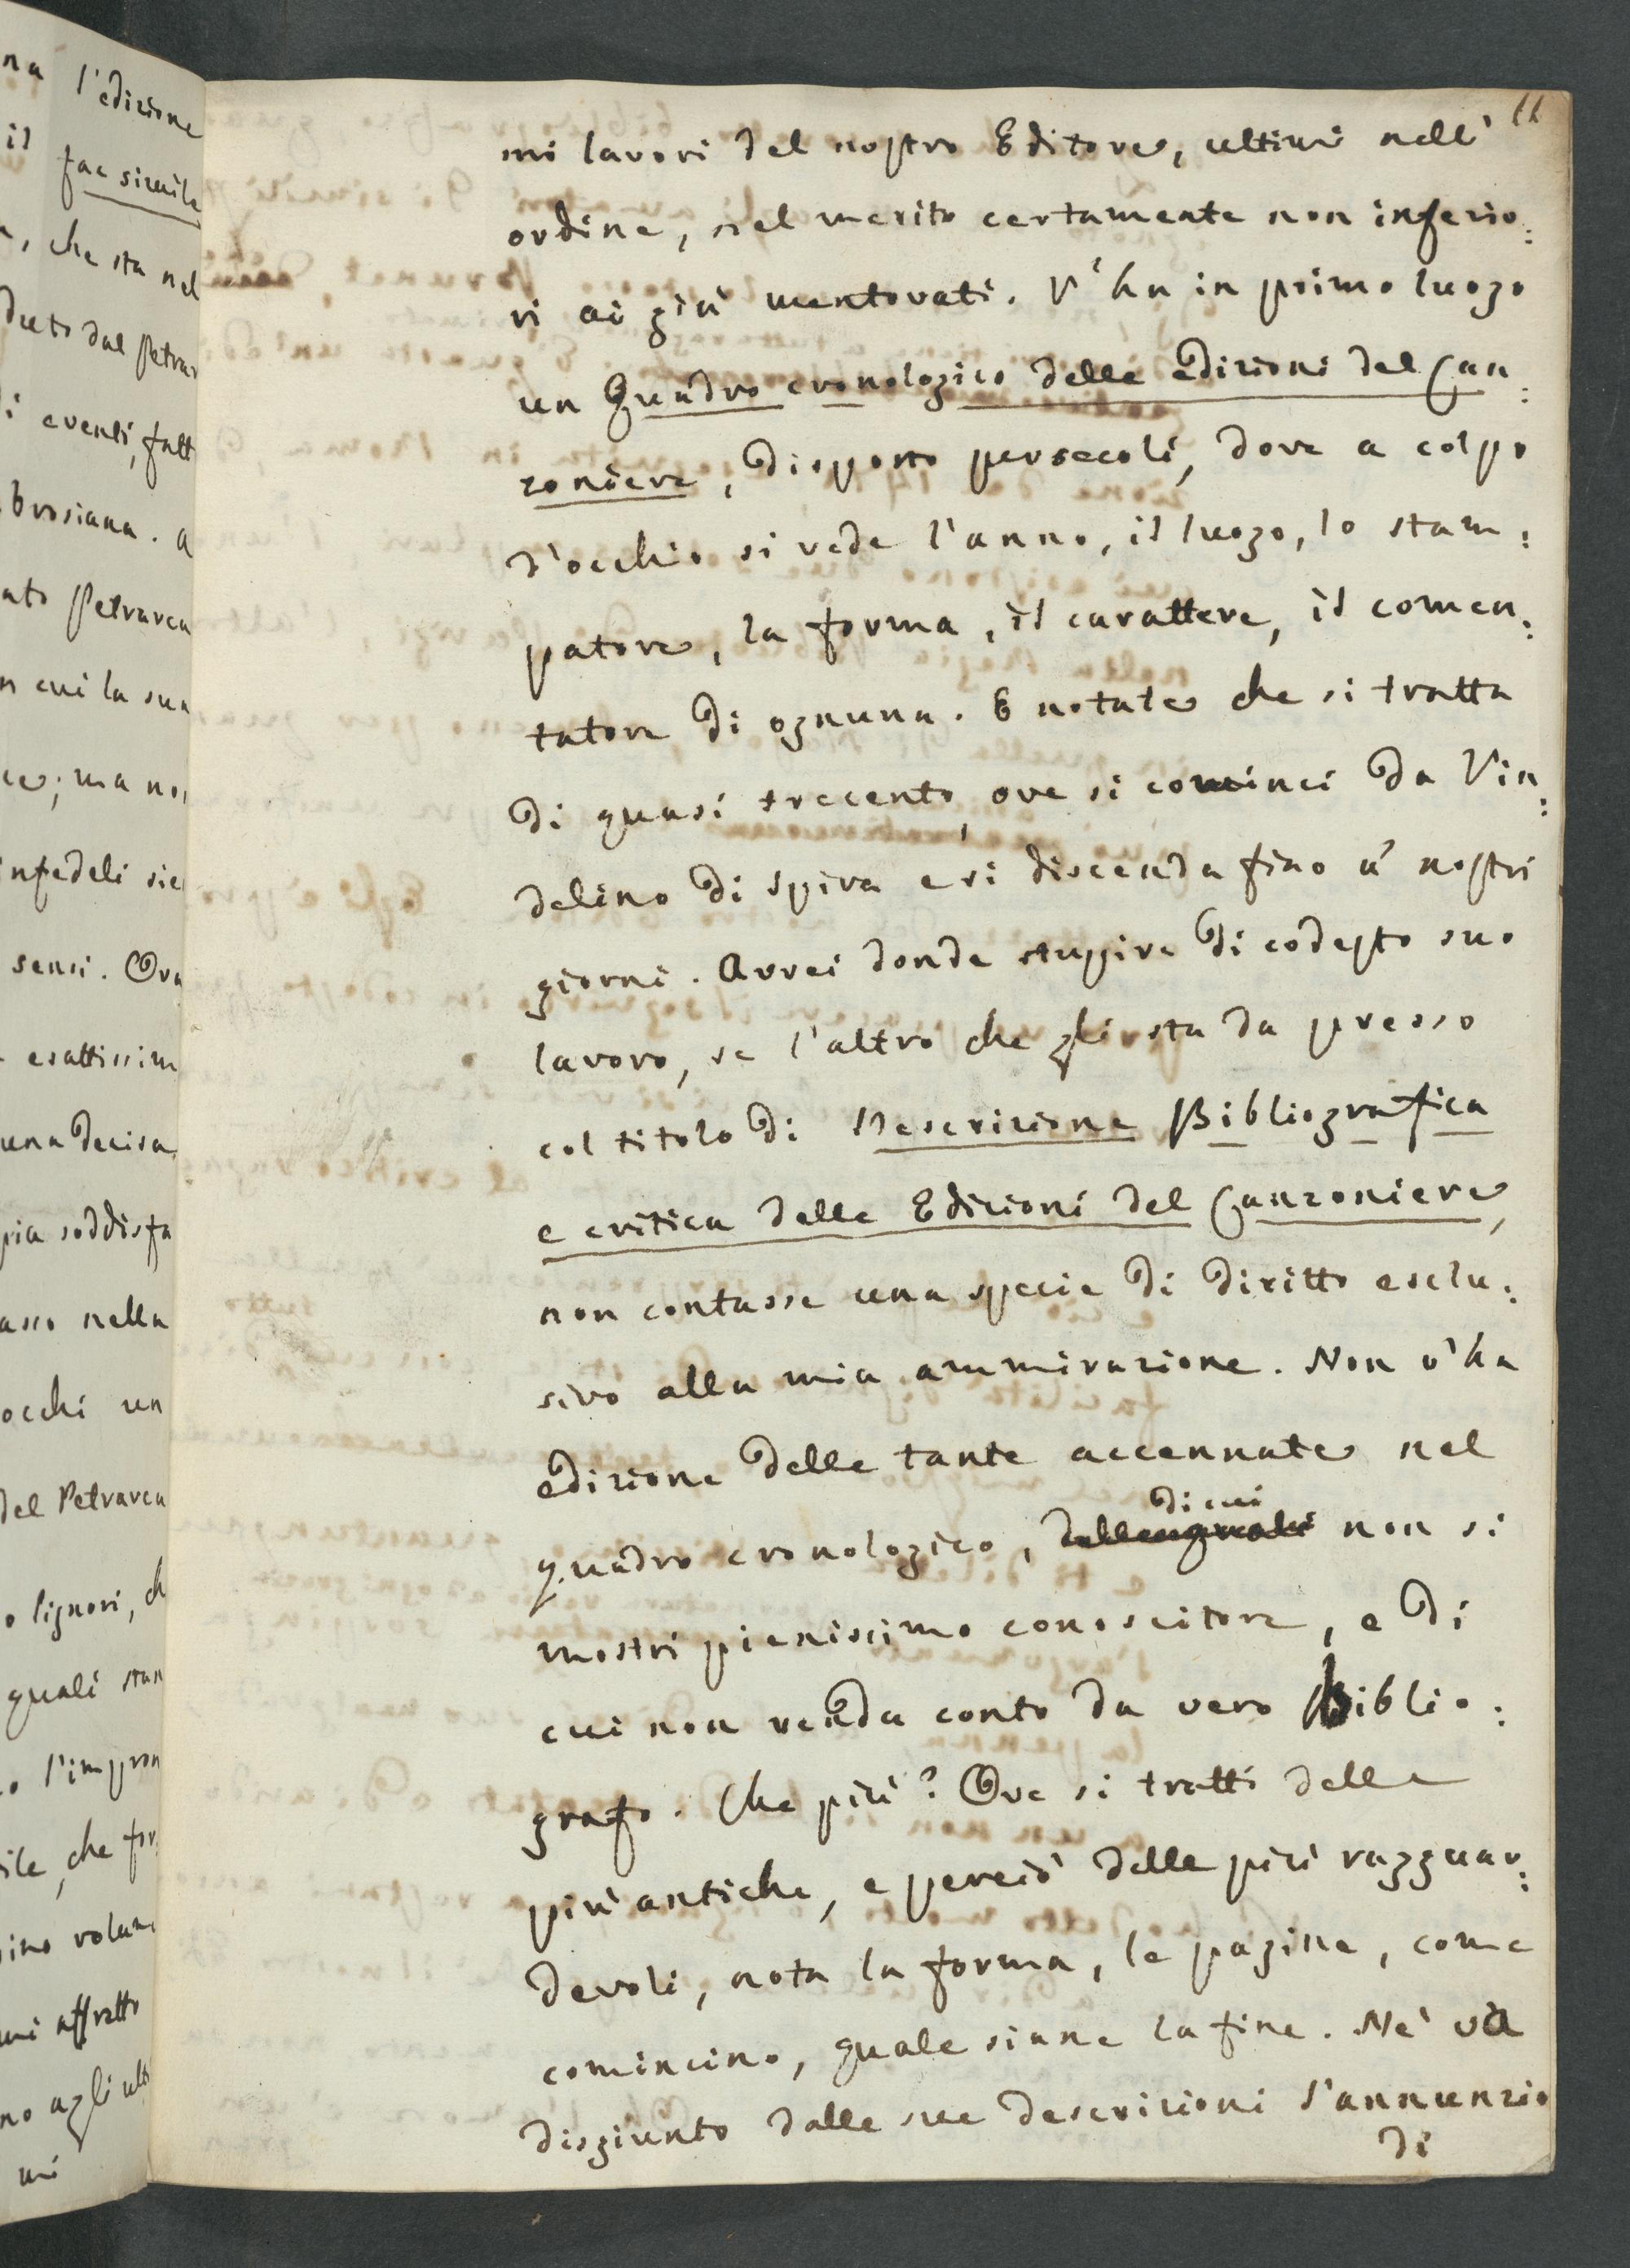 na l'edizione
il fac simile
, che sta nel
duto dal Petrar
di eventi, fatt
brosiana. a
ato Petrarca
n cui la sua
ce; ma non
infedeli sie
sensi. Ora
esattissim
una decisa
pia soddisfa
asso nella
occhi un
del Petrarca
o lignori, ch
quali stan
o l'impron
ile, che for
simo volum
mi affretto
no agli ult
mi
11
mi lavori del nostro Editore, ultimi nell'
ordine, nel merito certamente non inferio:
ri ai già mentovati. V'ha in primo luogo
un Quadro cronologico delle edizioni del Can:
zoniere, disposto per secoli, dove a colpo
d'occhio si vede l'anno, il luogo, lo stam:
patore, la forma, il carattere, il comen:
tatore di ognuna. E notate che si tratta
di quasi trecento, ove si cominci da Vin:
delino di Spira e si discenda fino a' nostri
giorni. Avrei donde stupire di codesto suo
lavoro, se l'altro che gli sta da presso
col titolo di Descrizione Bibliografica
e critica delle Edizioni del Canzoniere,
non contasse una specie di diritto esclu:
sivo alla mia ammirazione. Non v'ha
edizione delle tante accennate nel
quadro cronologico, delle quali di cui non si
mostri pienissimo conoscitore, e di
cui non renda conto da vero Biblio:
grafo. Che più? Ove si tratti delle
più antiche, e perciò delle più ragguar:
devoli, nota la forma, le pagine, come
comincino, quale siane la fine. Nè va
disgiunto dalle sue descrizioni l'annunzio
di